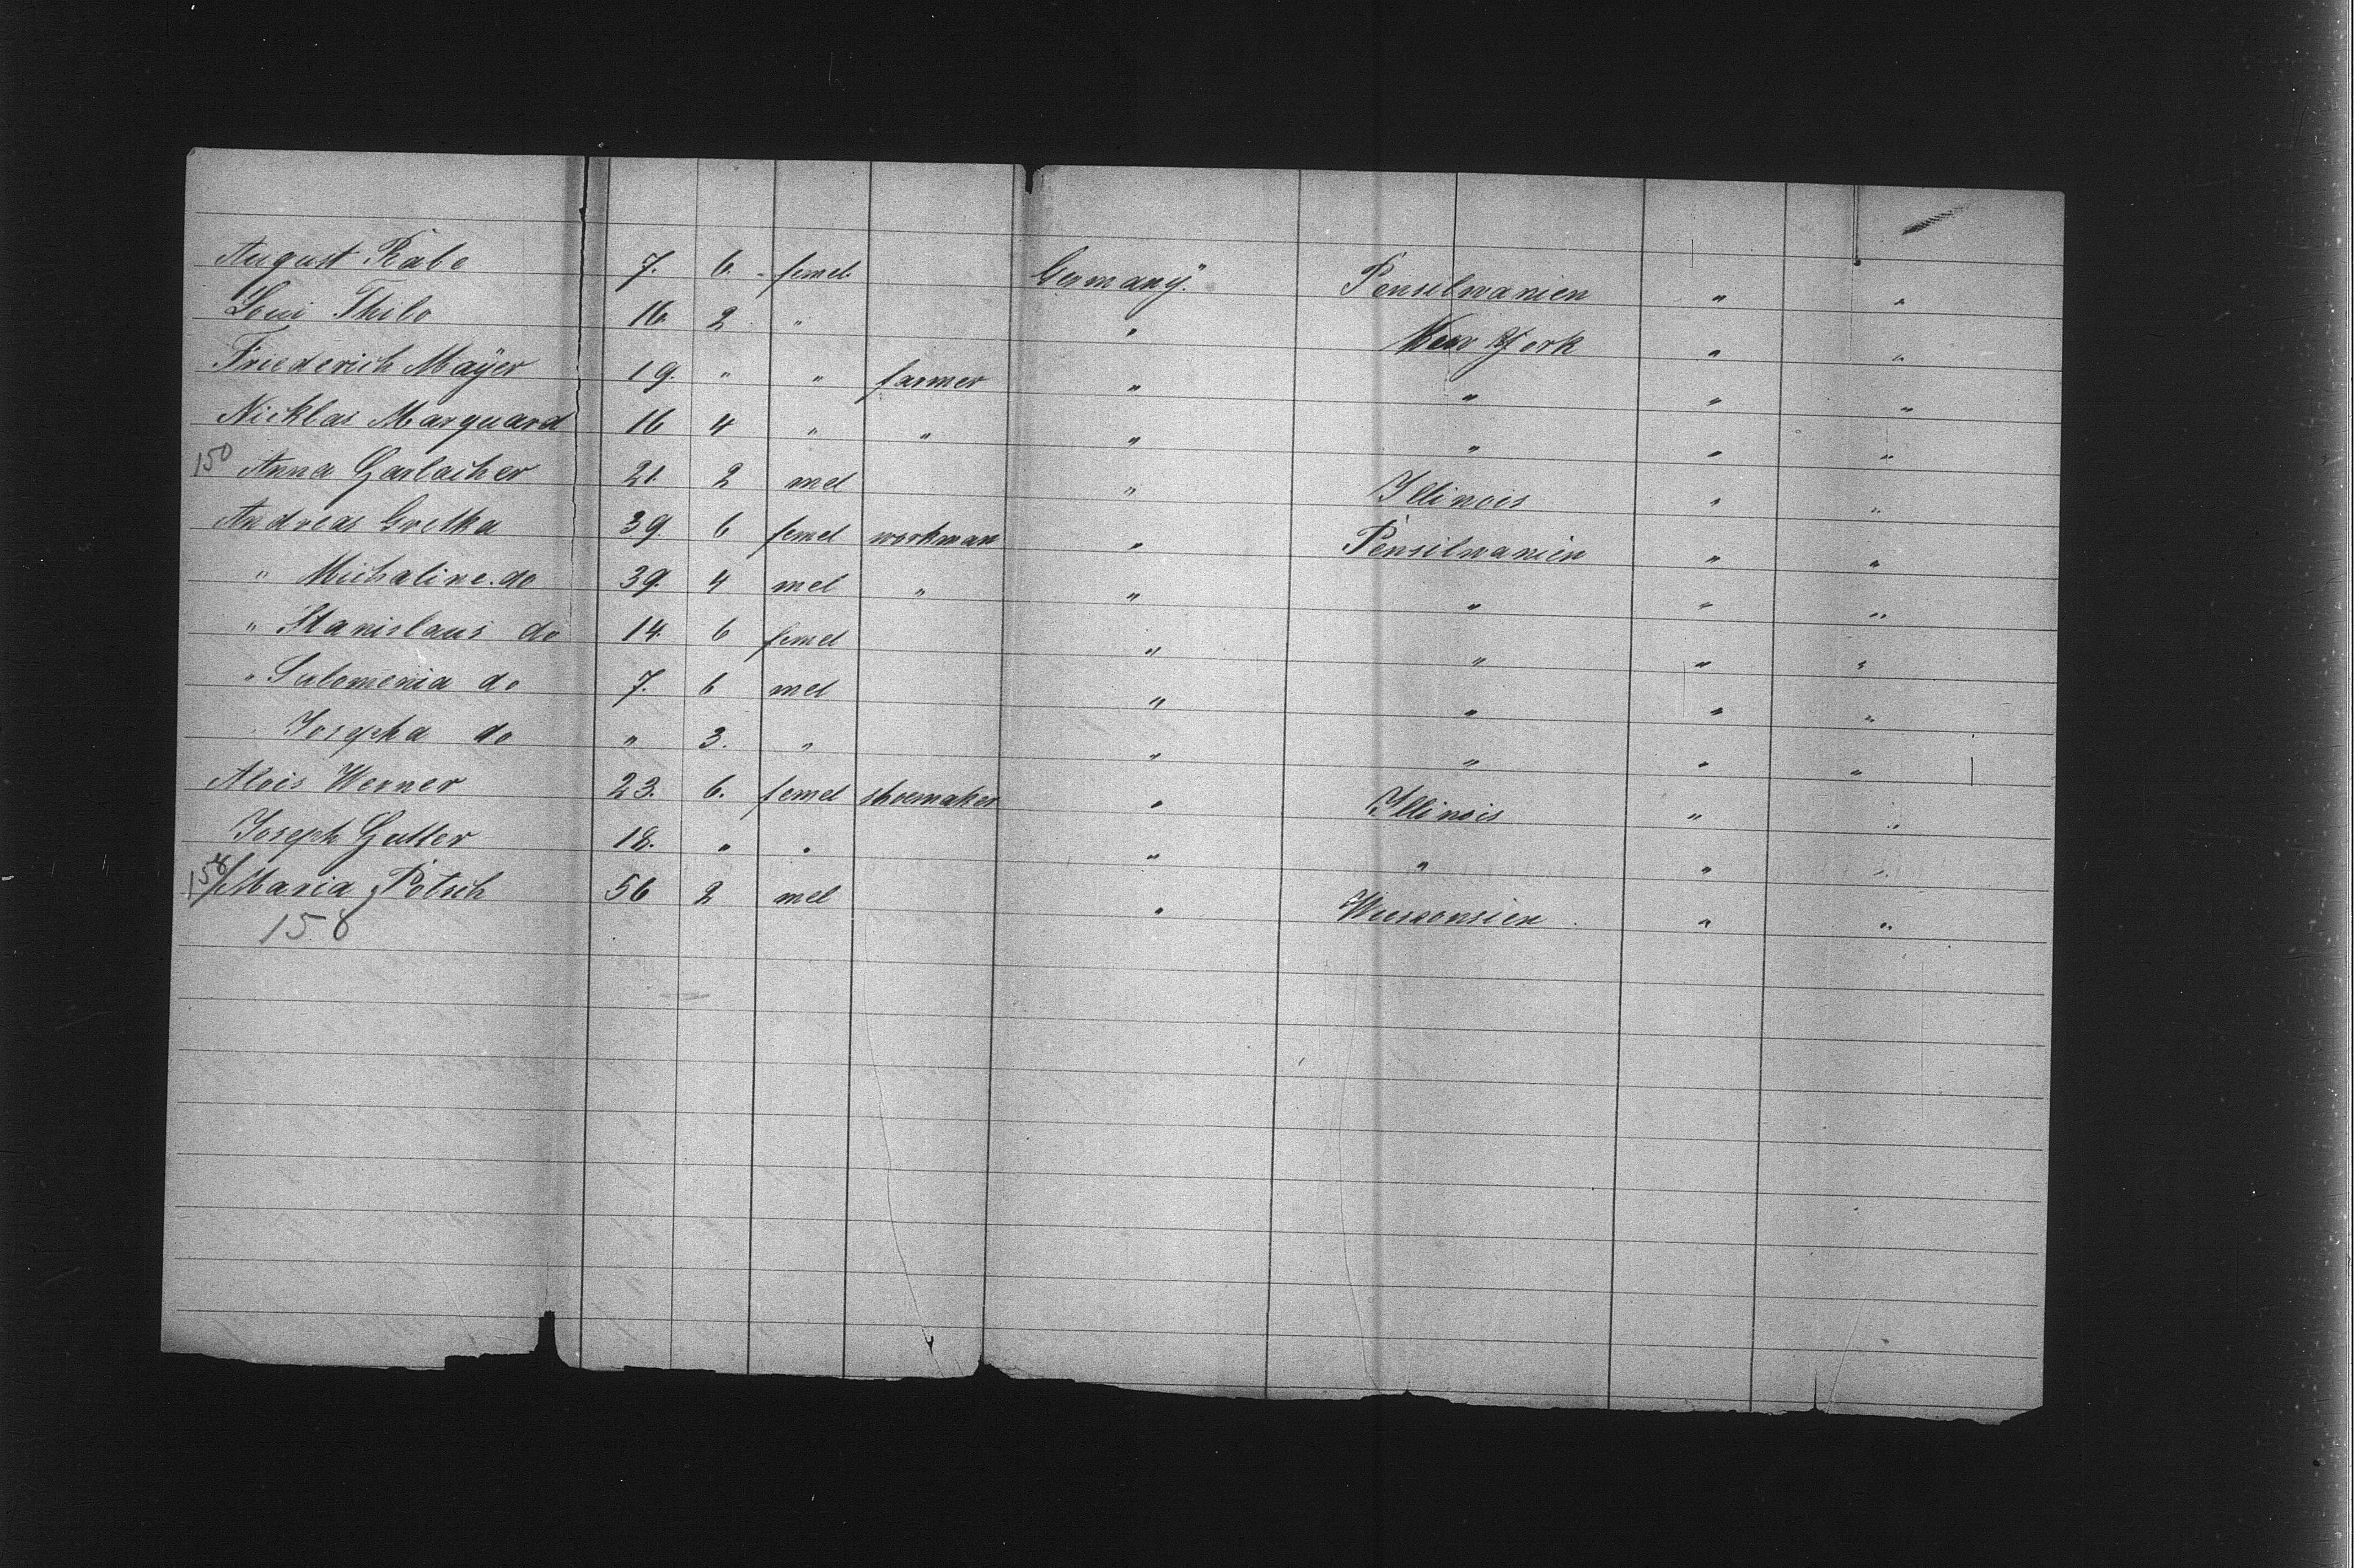 August Rabe 7. 6. - femel. Germany. Pensilvanien " "
Loui Thilo 16. 2 " " New York " "
Friederich Mayer 19. " " farmer " " " "
Nicklas Marquard 16 4 " " " " " "
150 Anna Garlacher 21. 2 mel " Illinois " "
Andreas Gretka 39. 6 femel workman " Pensilvanien " "
" Michaline. do 39. 4 mel " " " " "
" Stanislaus do 14. 6 femel " " " "
" Salomenia do 7. 6 mel " " " "
Josepha do " 3. " " " " "
Alois Werner 23. 6. femel shoemaker " Illinois " "
Joseph Gutter 18. " " " " " "
158/ Maria Pötsch 56 2 mel " Wiesconsien " "
158